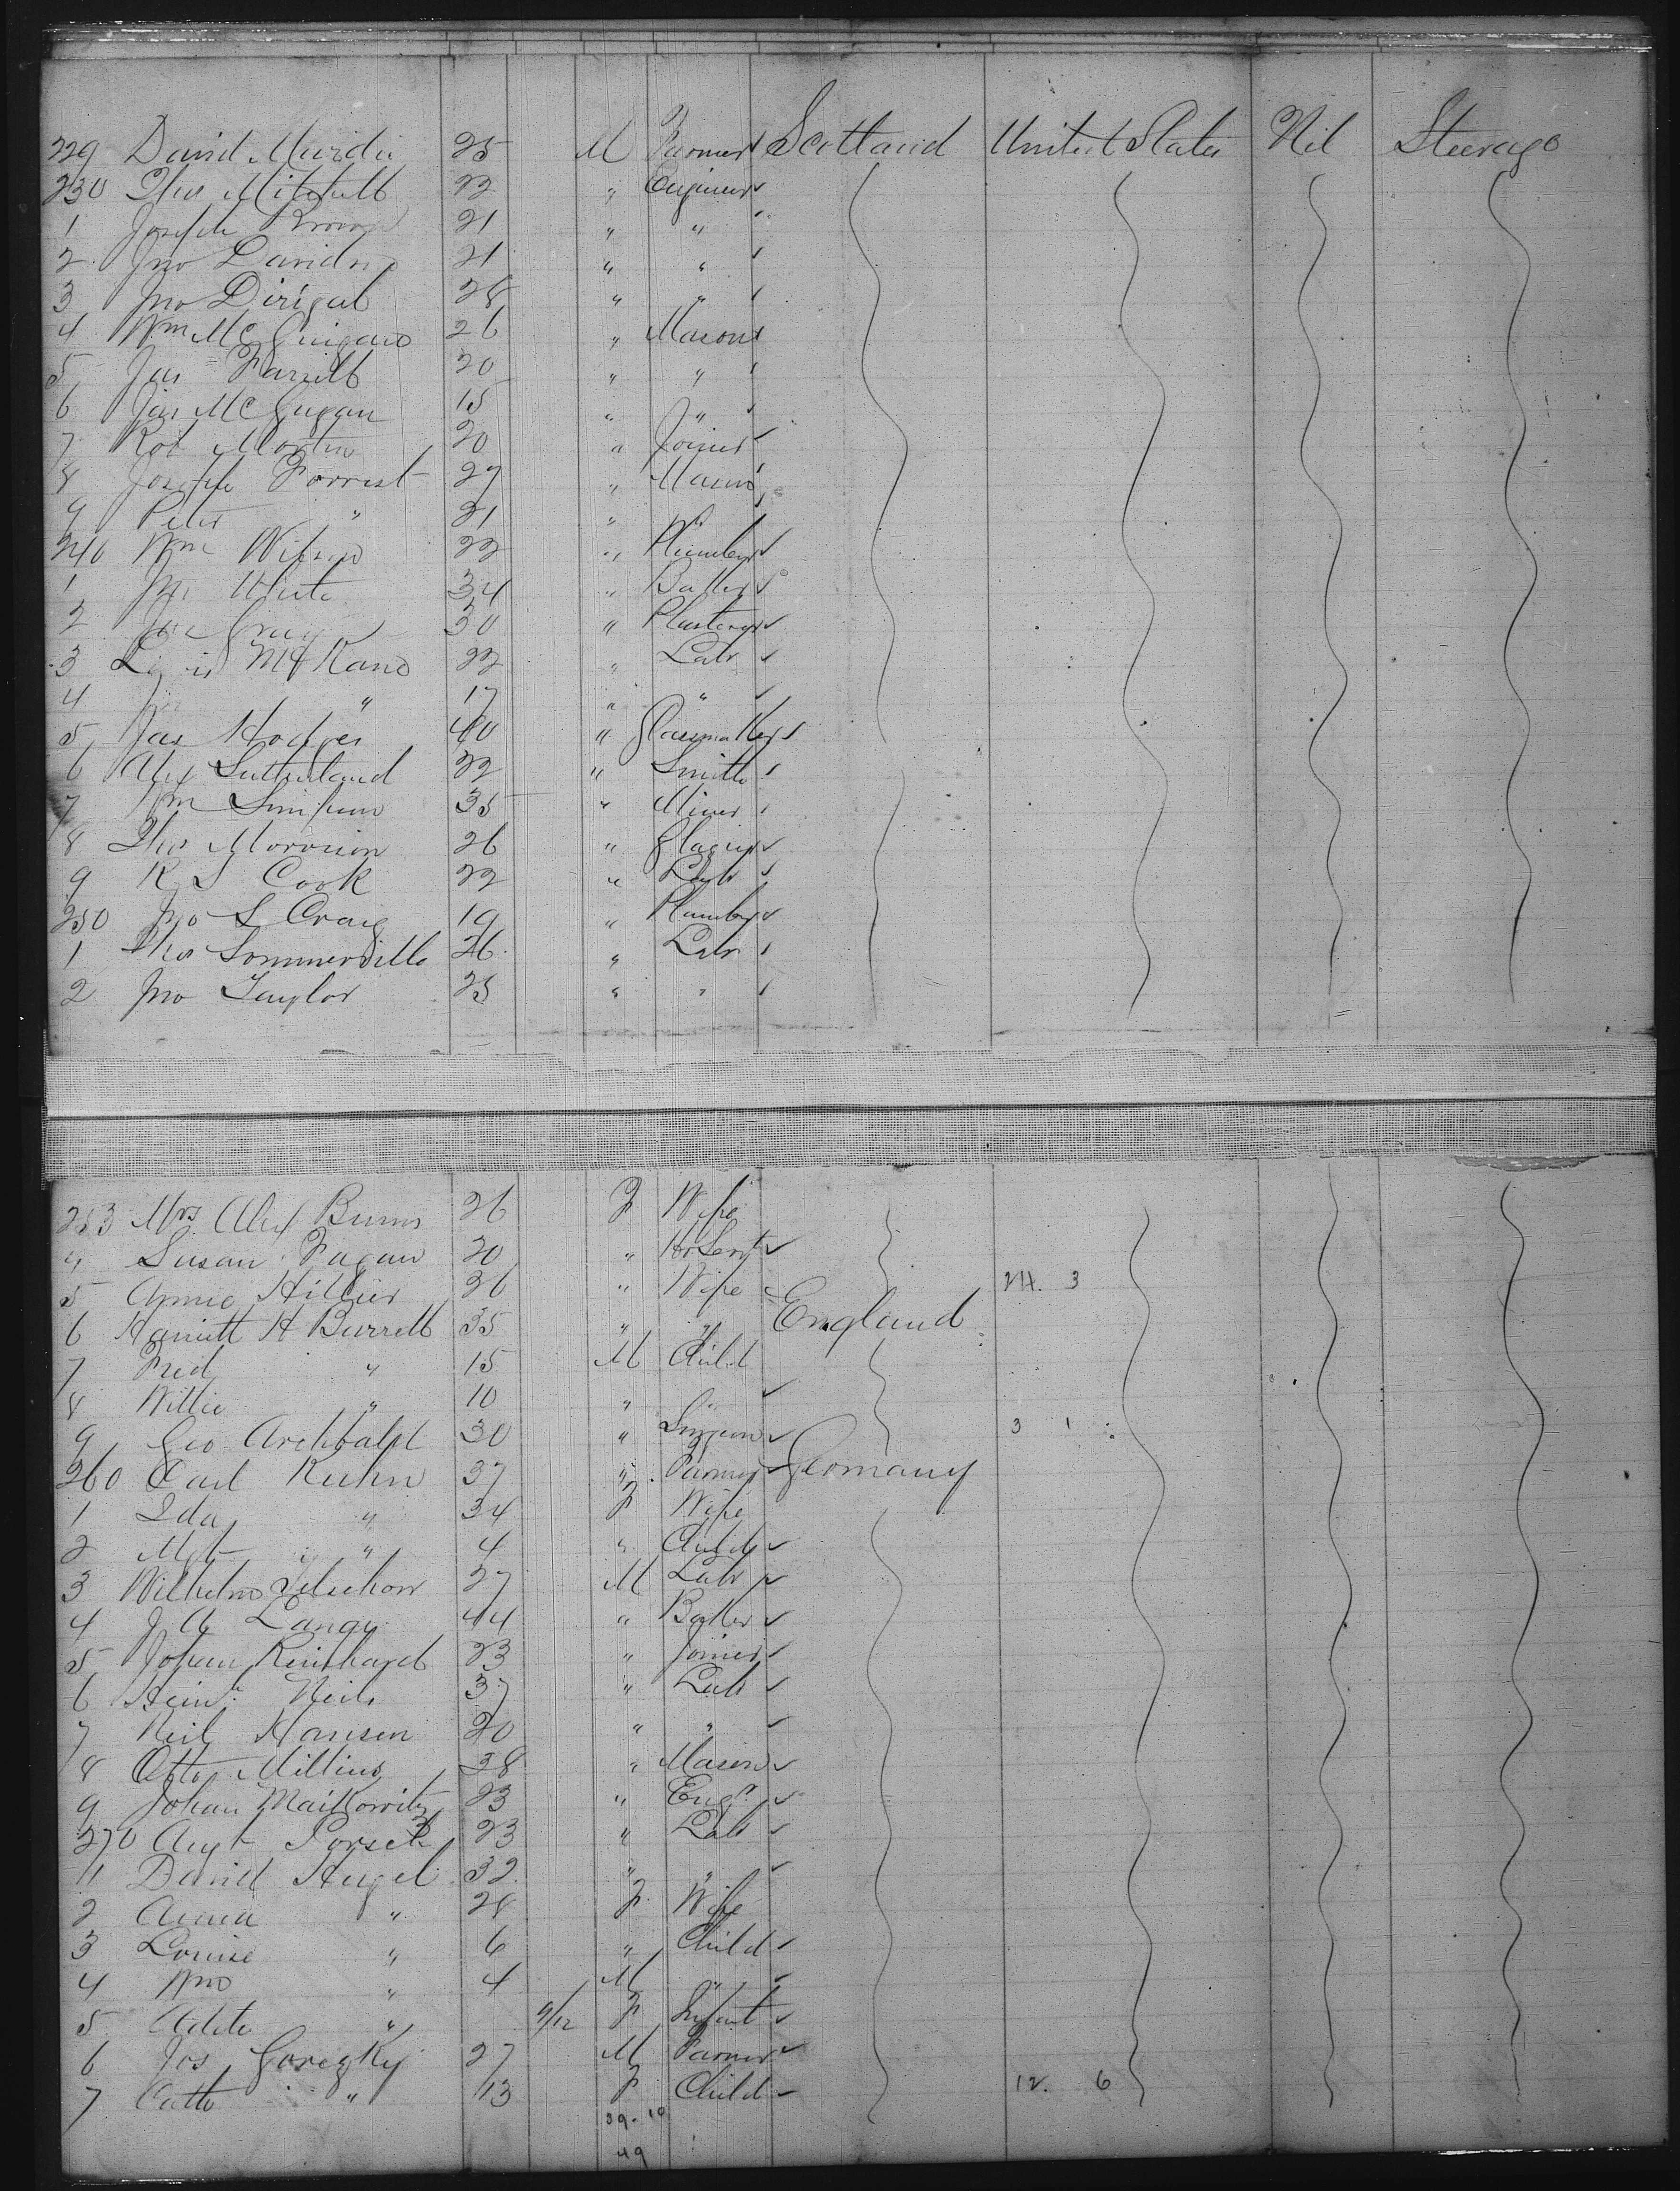 229 David Murdie 25 M Farmer Scotland United States Nil Steerage
230 Thos Mitchell 22 " Engineer
1 Joseph Brown 21 " "
2 Jno Davidson 21 " "
3 Jno 28 " "
4 Wm McGuigan 26 " Mason
5 Jas Farrell 20 " "
6 Jas McGugan 15 " "
7 Robt Morton 20 " Joiner
8 Joseph Forrest 27 " Mason
9 Peter " 21 " "
240 Wm Wilson 22 " Plumber
1 Jno White 34 " Baker
2 Craig 30 " Plasterer
3 22 " Labr
4 " 17 " "
5 Jas Hodges 40 " Glassmaker
6 Alex Sutherland 22 " Smith
7 Wm Simpson 35 " Miner
8 Thos Morrison 26 " Glazier
9 R S Cook 22 " Labr
250 Jno S Craig 19 " Plumber
1 Thos Sommerville 26 " Labr
2 Jno Taylor 25 " "
253 Mrs Alex Burns 26 F Wife
4 Susan Fagan 20 " Ho Servt
5 Annie Hillier 36 " Wife 24. 3
6 Harriett H Burrell 35 " " England
7 Fred " 15 M Child
8 Willie " 10 " "
9 Geo Archbald 30 " Surgeon 3 1
260 Carl Kuhn 37 " Farmer Germany
1 Ida " 34 F Wife
2 Mgt " 4 " Child
3 Wilhelm 27 M Labr
4 J A Lange 44 " Baker
5 Johan Reinhardt 23 " Joiner
6 Heinr Neils 37 " Labr
7 Neil Hansen 20 " "
8 Otto Millins 38 " Mason
9 Johan Maikowitz 23 " Engr
270 Augt 23 " Labr
1 David Hugel 32 " "
2 Anna " 28 F Wife
3 Louise " 6 " Child
4 Wm " 4 M "
5 " 9/12 F Infant
6 Jos Goregky 27 M Farmer
7 Catte " 13 F Child 12. 6
39-10
49